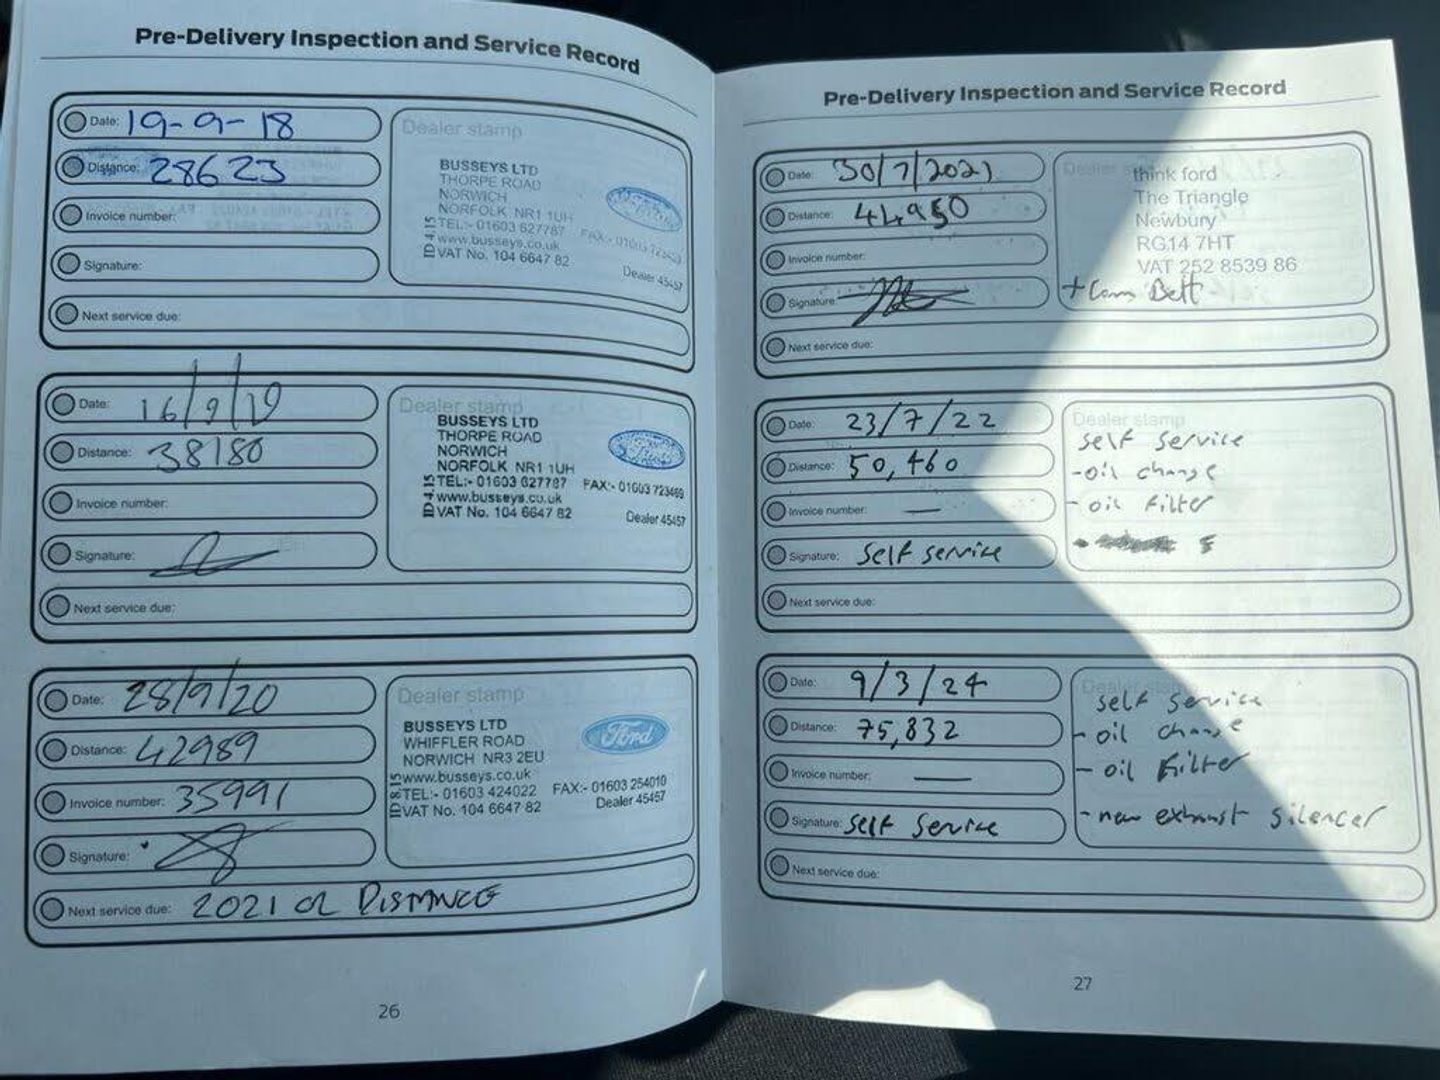 Pre-Delivery Inspection and Service Record
Date: 19-9-18
Distance: 28623
Invoice number:
Signature:
Next service due:
Dealer stamp
BUSSEYS LTD
THORPE ROAD
NORWICH
NORFOLK NR1 1UH
TEL:- 01603 627787
www.busseys.co.uk
VAT No. 104 6647 82
ID 415
Dealer 45457
Date: 16/9/19
Distance: 38180
Invoice number:
Signature:
Next service due:
Dealer stamp
BUSSEYS LTD
THORPE ROAD
NORWICH
NORFOLK NR1 1UH
TEL:- 01603 627787 FAX:- 01603 723469
www.busseys.co.uk
VAT No. 104 6647 82 Dealer 45457
ID 415
Date: 28/9/20
Distance: 42989
Invoice number: 35991
Signature:
Next service due: 2021 OR DISTANCE
Dealer stamp
BUSSEYS LTD
WHIFFLER ROAD
NORWICH NR3 2EU
www.busseys.co.uk
TEL:- 01603 424022 FAX:- 01603 254010
VAT No. 104 6647 82 Dealer 45457
ID 815
Ford
26
Pre-Delivery Inspection and Service Record
Date: 30/7/2021
Distance: 44950
Invoice number:
Signature:
Next service due:
Dealer
think ford
The Triangle
Newbury
RG14 7HT
VAT 252 8539 86
+ Cam Belt
Date: 23/7/22
Distance: 50,460
Invoice number: —
Signature: self service
Next service due:
Dealer stamp
self service
- oil change
- oil filter
Date: 9/3/24
Distance: 75,832
Invoice number: —
Signature: self service
Next service due:
self service
- oil change
- oil filter
- new exhaust silencer
27